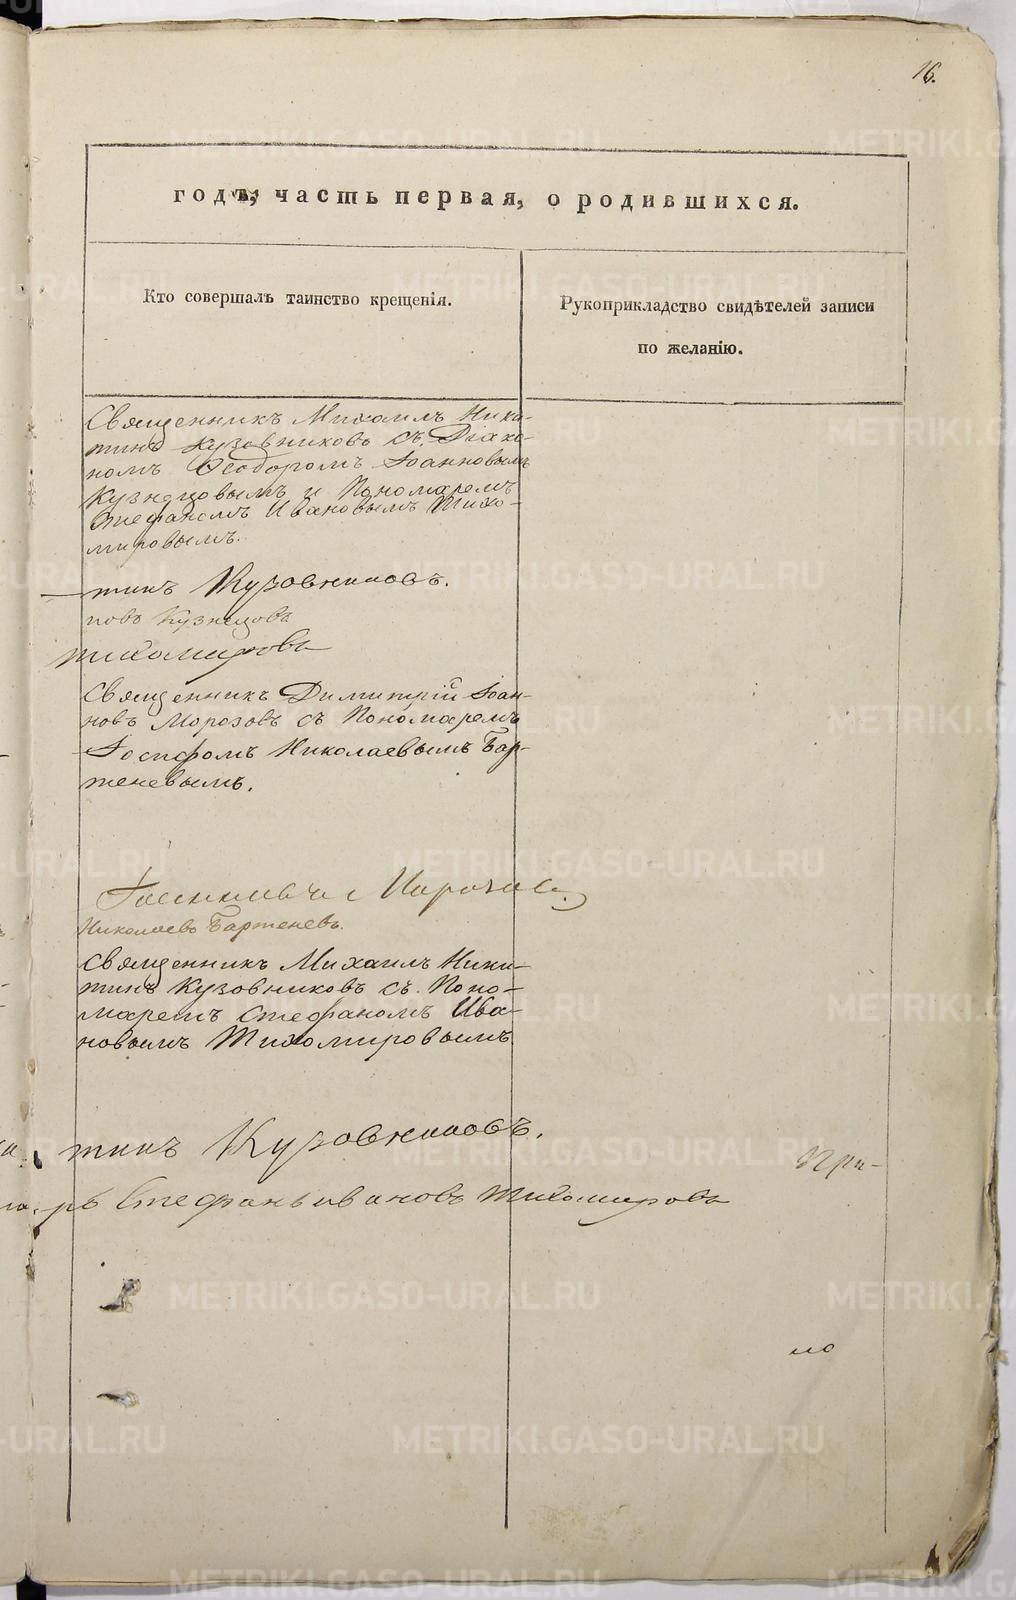 16.
годъ, часть первая, о родившихся.
Кто совершалъ таинство крещенія.
Рукоприкладство свидѣтелей записи
по желанію.
Священникъ Михаилъ Ники-
тинъ Кузовниковъ съ Діако-
номъ Ѳеодоромъ Іоанновымъ
Кузнецовымъ и Пономаремъ
Стефаномъ Ивановымъ Тихо-
мировымъ.
тинъ Кузовниковъ.
новъ Кузнецовъ
Тихомировъ
Священникъ Димитрій Іоан-
новъ Морозовъ съ Пономаремъ
Іосифомъ Николаевымъ Бар-
теневымъ.
Морозовъ.
Николаевъ Бартеневъ.
Священникъ Михаилъ Ники-
тинъ Кузовниковъ съ Поно-
маремъ Стефаномъ Ива-
новымъ Тихомировымъ
тинъ Кузовниковъ.
При-
рь Стефанъ Ивановъ Тихомировъ
по
METRIKI.GASO-URAL.RU